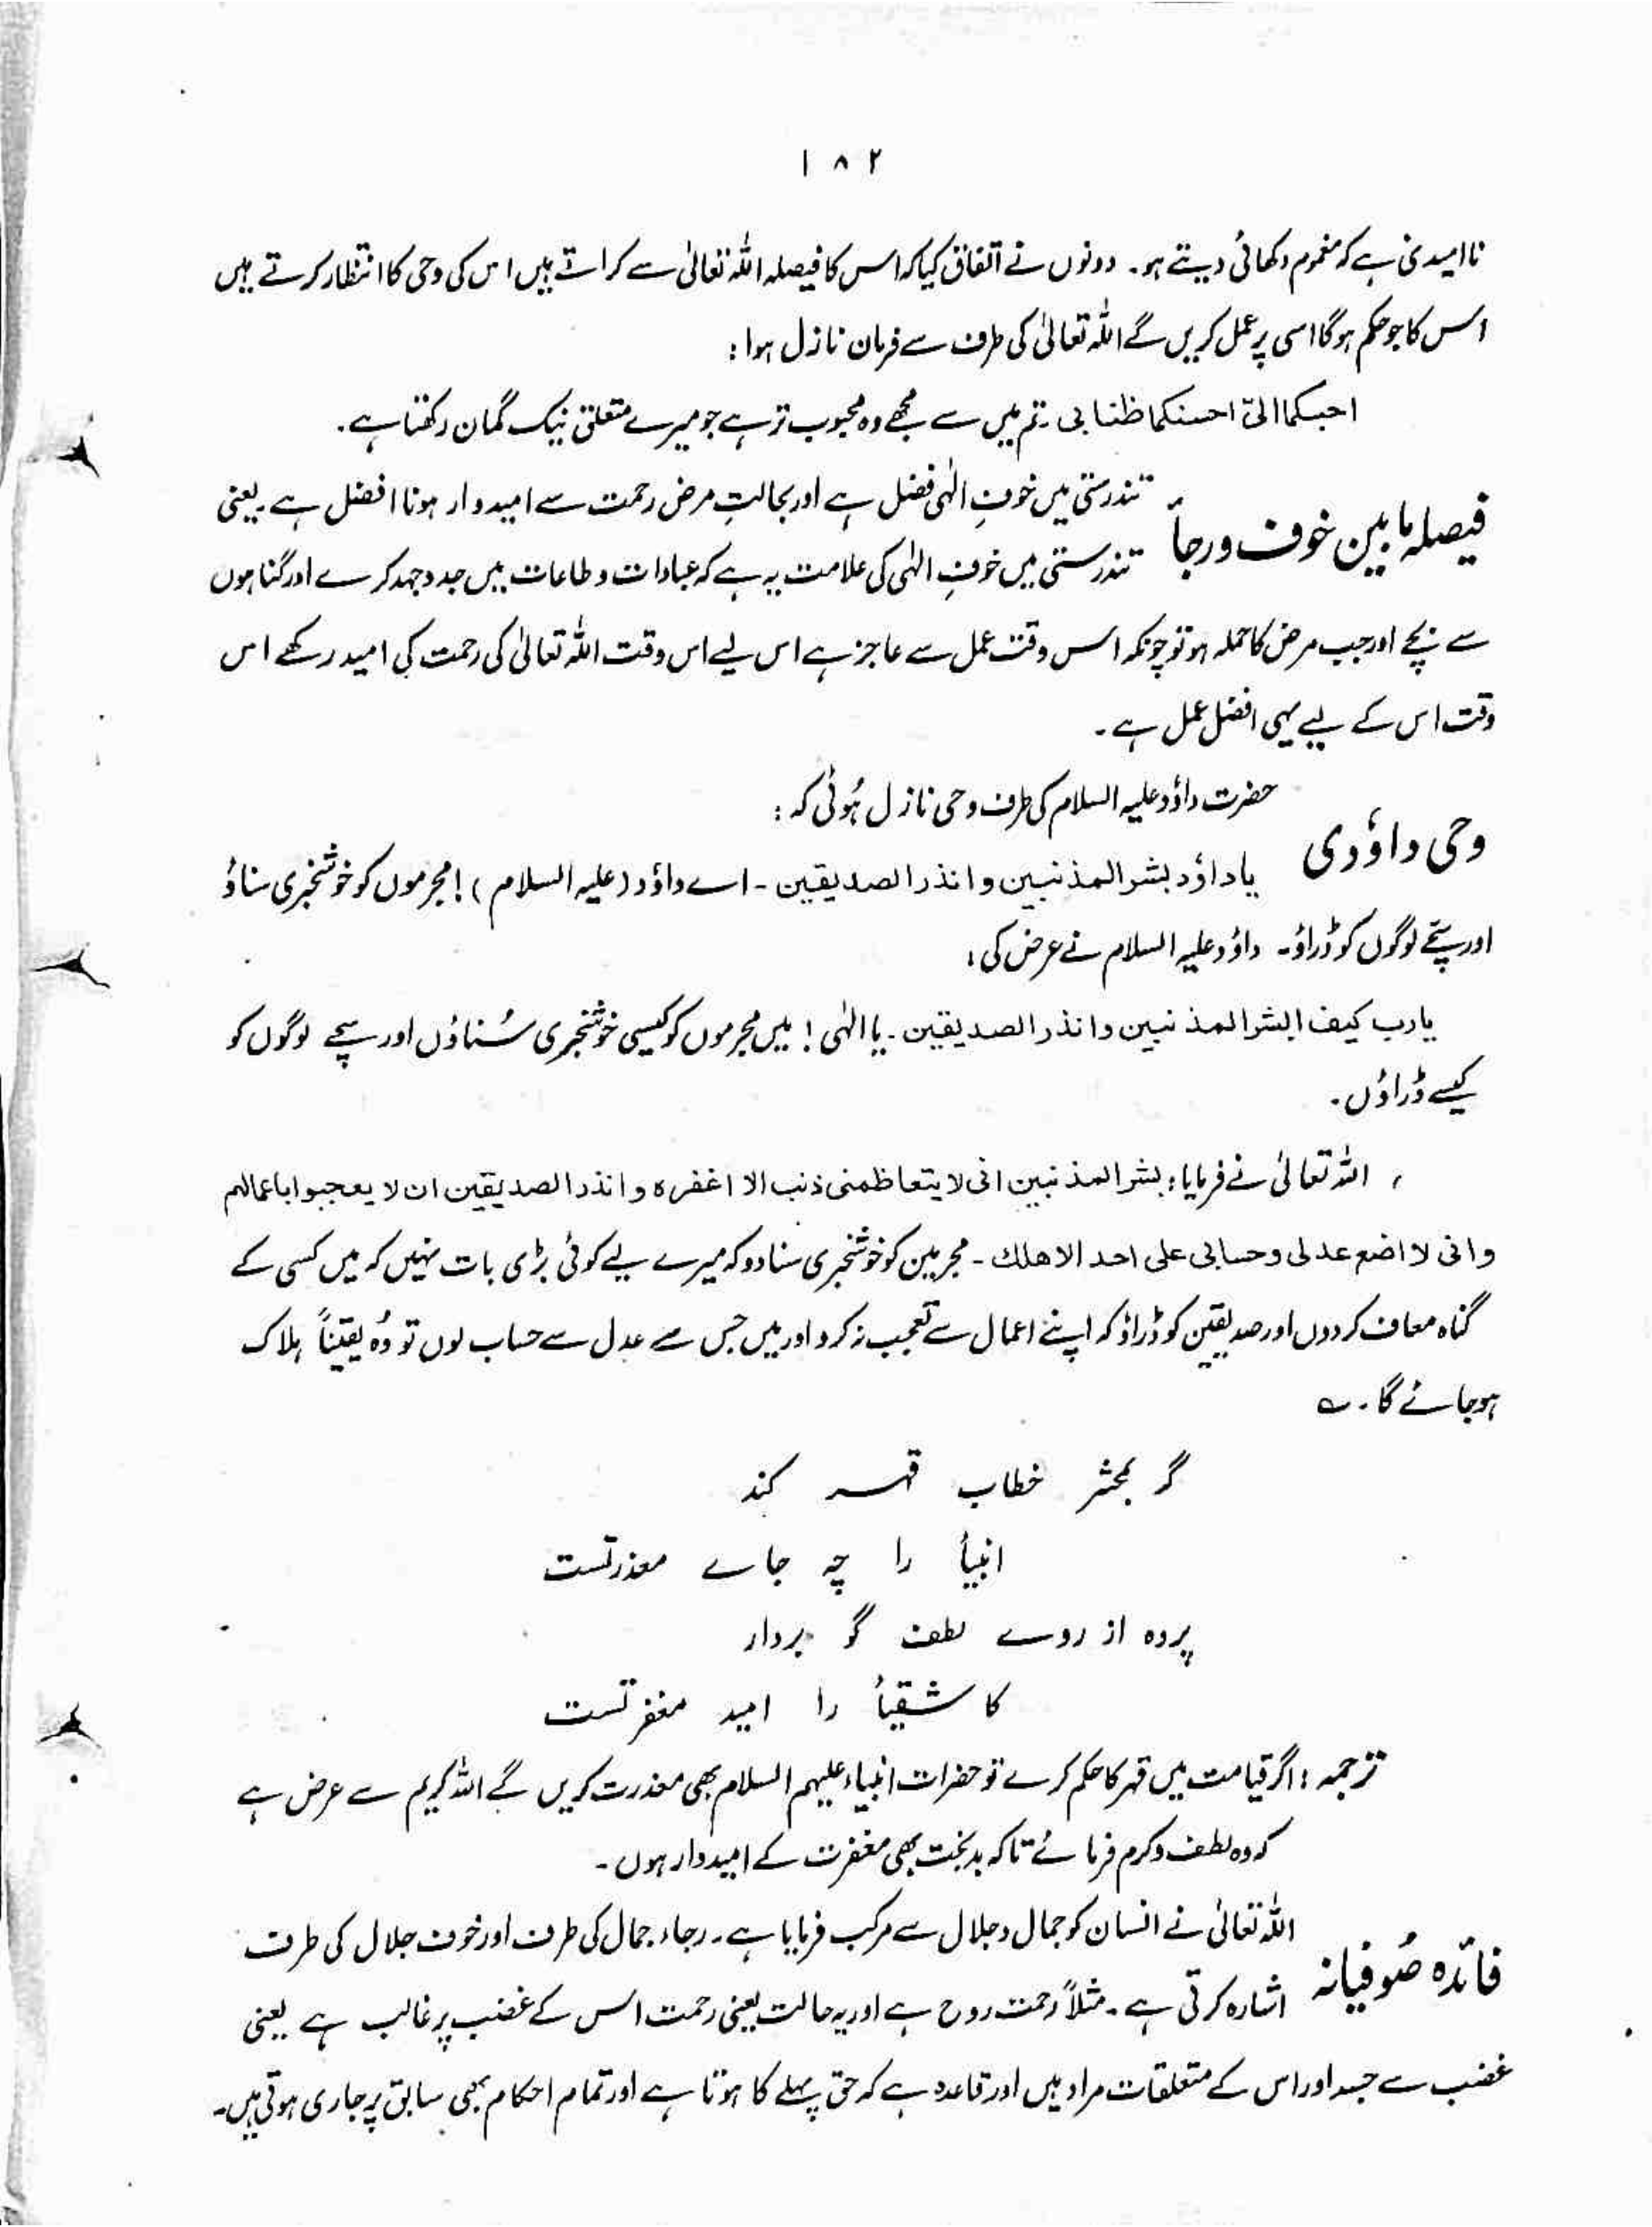 ۱۸۲
ناامیدی ہے کہ مغموم دکھائی دیتے ہو۔ دونوں نے اتفاق کیا کہ اس کا فیصلہ اللہ تعالیٰ سے کراتے ہیں اس کی وحی کا انتظار کرتے ہیں
اس کا جو حکم ہوگا اسی پر عمل کریں گے اللہ تعالیٰ کی طرف سے فرمان نازل ہوا :
احبکما الیّ احسنکما ظنا بی ۔ تم میں سے مجھے وہ محبوب تر ہے جو میرے متعلق نیک گمان رکھتا ہے ۔
فیصلہ مابین خوف و رجأ تندرستی میں خوفِ الٰہی فضل ہے اور بحالتِ مرض رحمت سے امیدوار ہونا افضل ہے ۔ یعنی
تندرستی میں خوفِ الٰہی کی علامت یہ ہے کہ عبادات و طاعات میں جدوجہد کرے اور گناہوں
سے بچے اور جب مرض کا حملہ ہو تو چونکہ اس وقت عمل سے عاجز ہے اس لیے اس وقت اللہ تعالیٰ کی رحمت کی امید رکھے اس
وقت اس کے لیے یہی افضل عمل ہے ۔
حضرت داؤد علیہ السلام کی طرف وحی نازل ہُوئی کہ :
وحی داؤدی یا داؤد بشر المذنبین و انذر الصدیقین ۔ اے داؤد (علیہ السلام) ! مجرموں کو خوشخبری سناؤ
اور سچّے لوگوں کو ڈراؤ ۔ داؤد علیہ السلام نے عرض کی :
یارب کیف ابشر المذنبین و انذر الصدیقین ۔ یا الٰہی ! میں مجرموں کو کیسی خوشخبری سُناؤں اور سچے لوگوں کو
کیسے ڈراؤں ۔
اللہ تعالیٰ نے فرمایا : بشر المذنبین انی لا یتعاظمنی ذنب الا اغفرہ و انذر الصدیقین ان لا یعجبوا باعمالہم
و انی لا اضع عدلی و حسابی علی احد الا ھلك ۔ مجرمین کو خوشخبری سنا دو کہ میرے لیے کوئی بڑی بات نہیں کہ میں کسی کے
گناہ معاف کر دوں اور صدیقین کو ڈراؤ کہ اپنے اعمال سے تعجب نہ کرو اور میں جس سے عدل سے حساب لوں تو وُہ یقیناً ہلاک
ہوجائے گا ۔ ؎
گر بمحشر خطاب قہر کند
انبیأ را چہ جاے معذرتست
پردہ از روے لطف گو بردار
کاشقیأ را امید مغفرتست
ترجمہ : اگر قیامت میں قہر کا حکم کرے تو حضرات انبیاء علیہم السلام بھی معذرت کریں گے اللہ کریم سے عرض ہے
کہ وہ لطف و کرم فرمائے تاکہ بدبخت بھی مغفرت کے امیدوار ہوں ۔
اللہ تعالیٰ نے انسان کو جمال و جلال سے مرکب فرمایا ہے ۔ رجاء جمال کی طرف اور خوف جلال کی طرف
فائدہ صُوفیانہ اشارہ کرتی ہے ۔ مثلاً رحمت روح ہے اور یہ حالت یعنی رحمت اس کے غضب پر غالب ہے یعنی
غضب سے جسد اور اس کے متعلقات مراد ہیں اور قاعدہ ہے کہ حق پہلے کا ہوتا ہے اور تمام احکام بھی سابق پر جاری ہوتی ہیں ۔